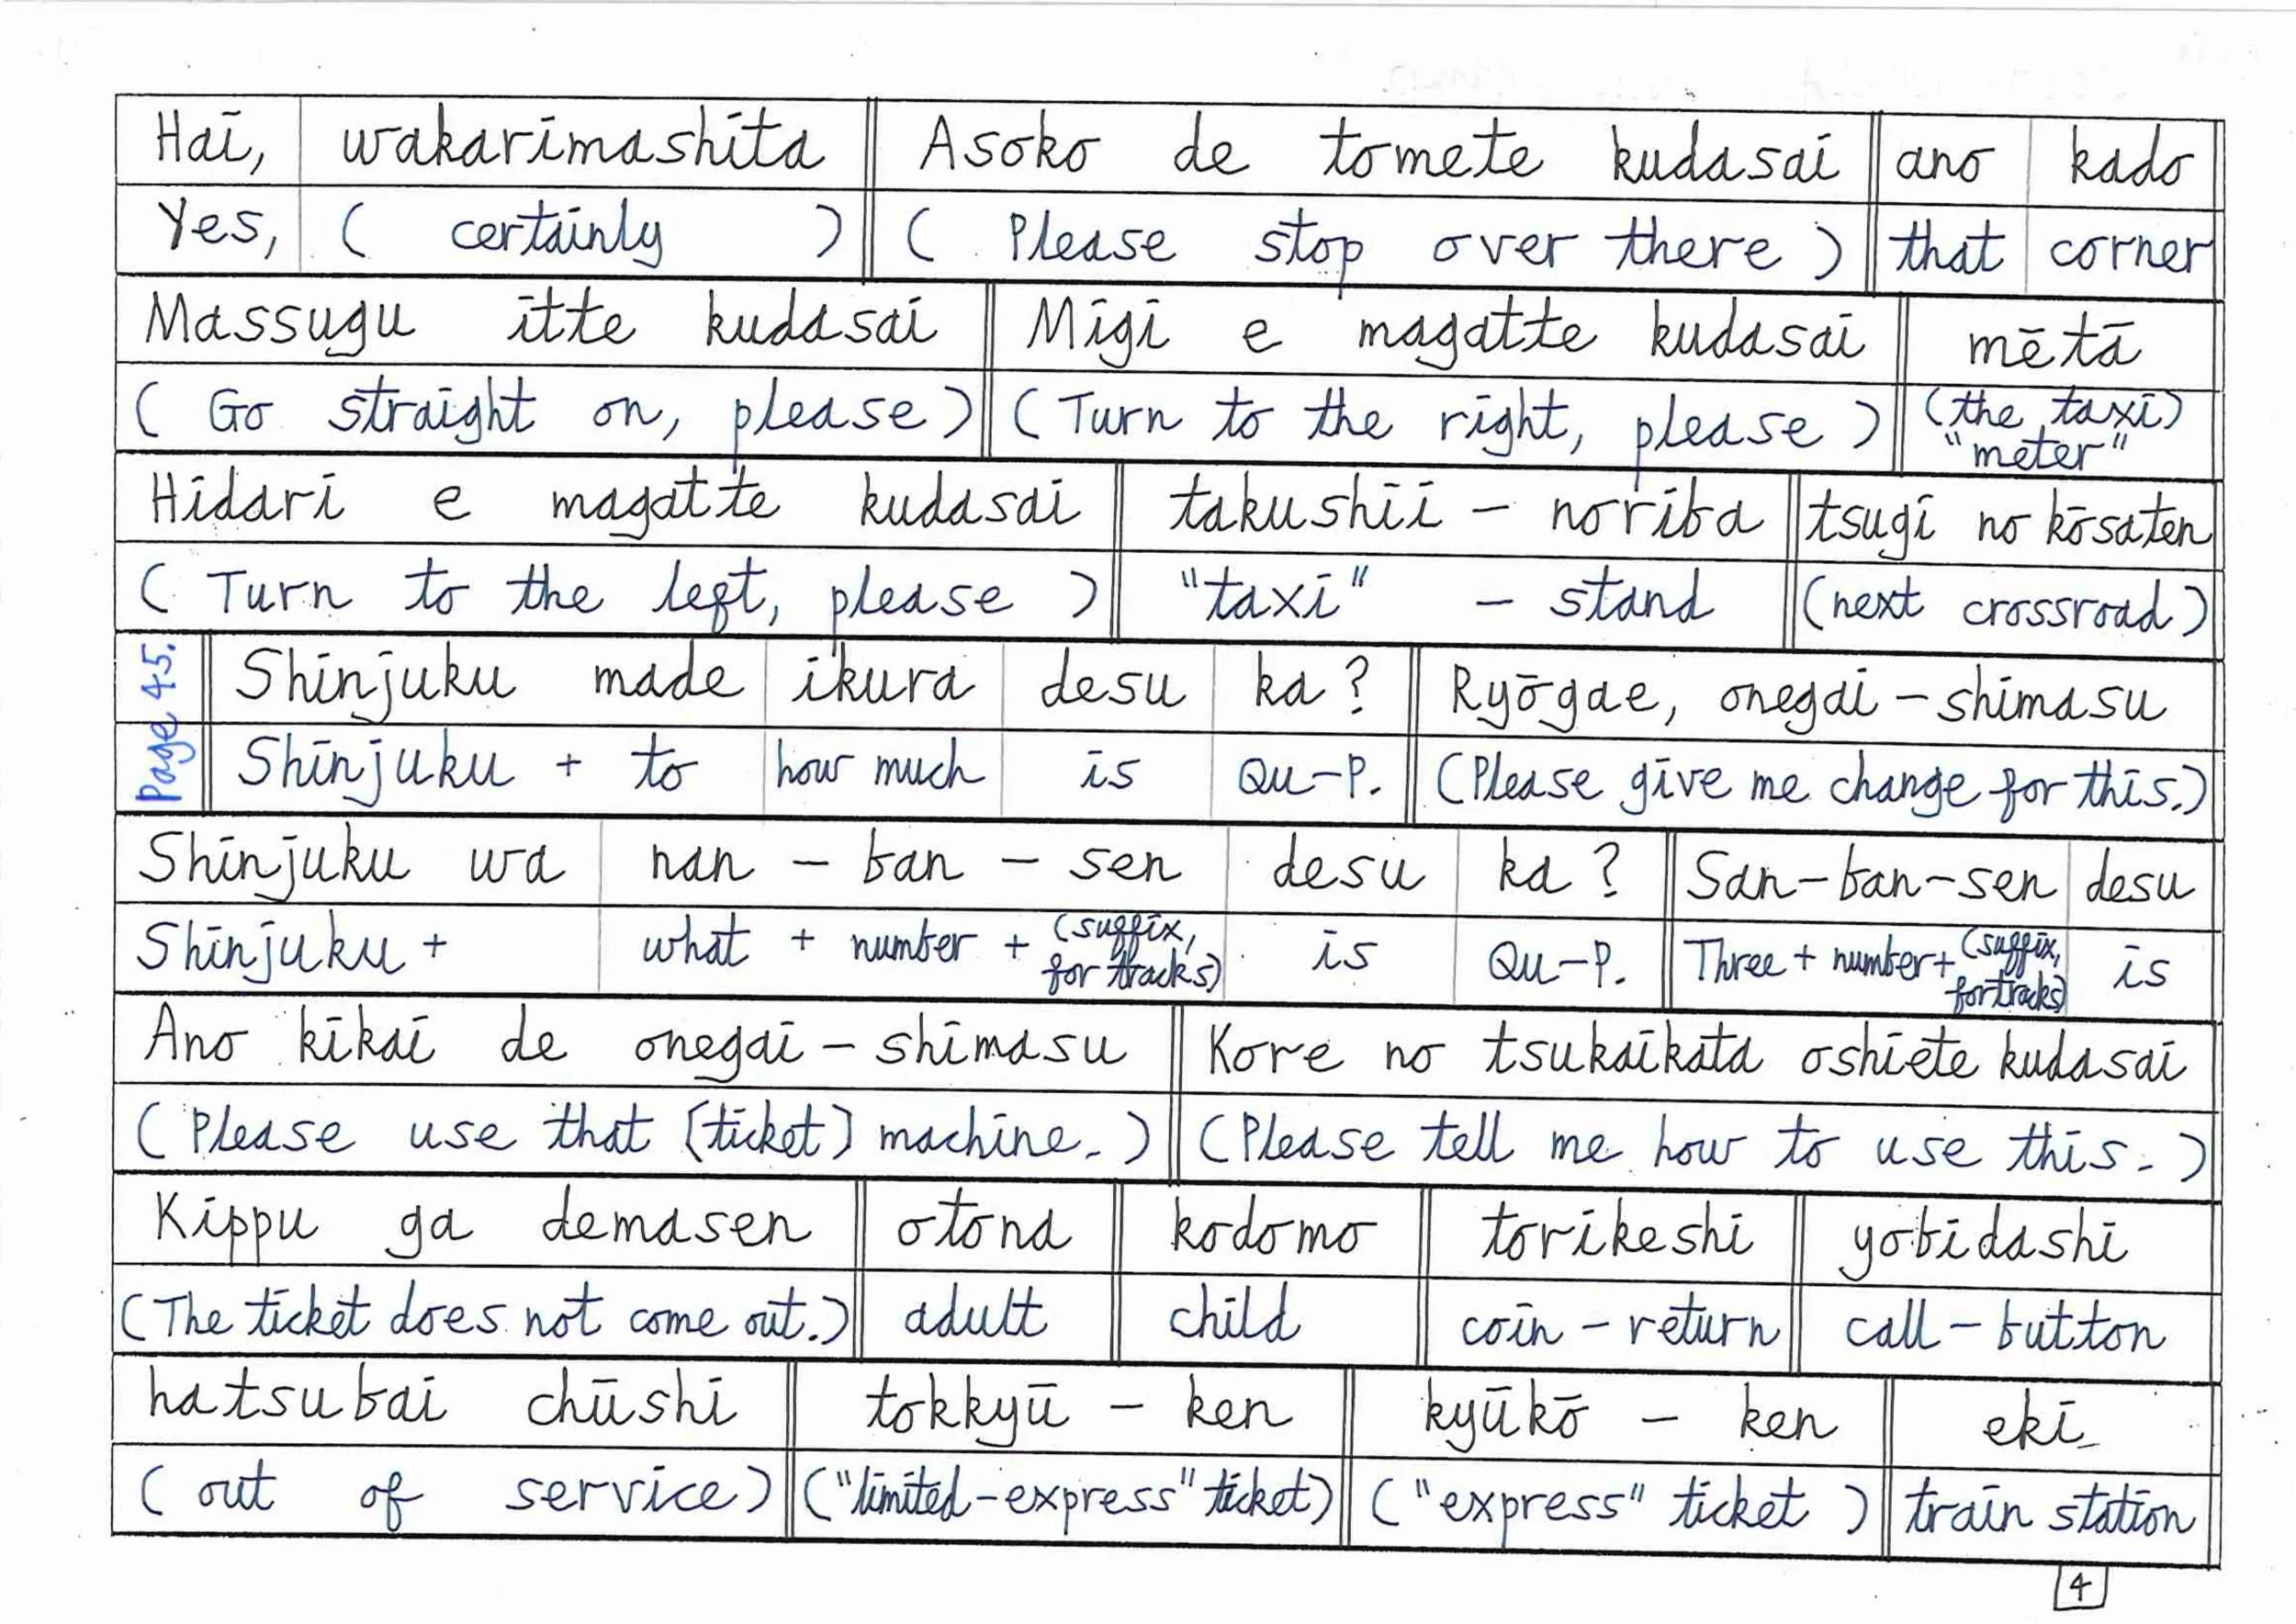 Hai, wakarimashita Asoko de tomete kudasai ano kado
Yes, ( certainly ) ( Please stop over there ) that corner
Massugu itte kudasai Migi e magatte kudasai mētā
( Go straight on, please ) ( Turn to the right, please ) (the taxi) "meter"
Hidari e magatte kudasai takushii - noriba tsugi no kōsaten
( Turn to the left, please ) "taxi" - stand (next crossroad)
Page 45.
Shinjuku made ikura desu ka? Ryōgae, onegai - shimasu
Shinjuku + to how much is Qu-P. (Please give me change for this.)
Shinjuku wa nan - ban - sen desu ka? San-ban-sen desu
Shinjuku + what + number + (suffix, for tracks) is Qu-P. Three + number + (suffix, for tracks) is
Ano kikai de onegai - shimasu Kore no tsukaikata oshiete kudasai
(Please use that [ticket] machine.) (Please tell me how to use this.)
Kippu ga demasen otona kodomo torikeshi yobidashi
(The ticket does not come out.) adult child coin - return call - button
hatsubai chūshi tokkyū - ken kyūkō - ken eki
( out of service ) ("limited-express" ticket) ("express" ticket ) train station
4